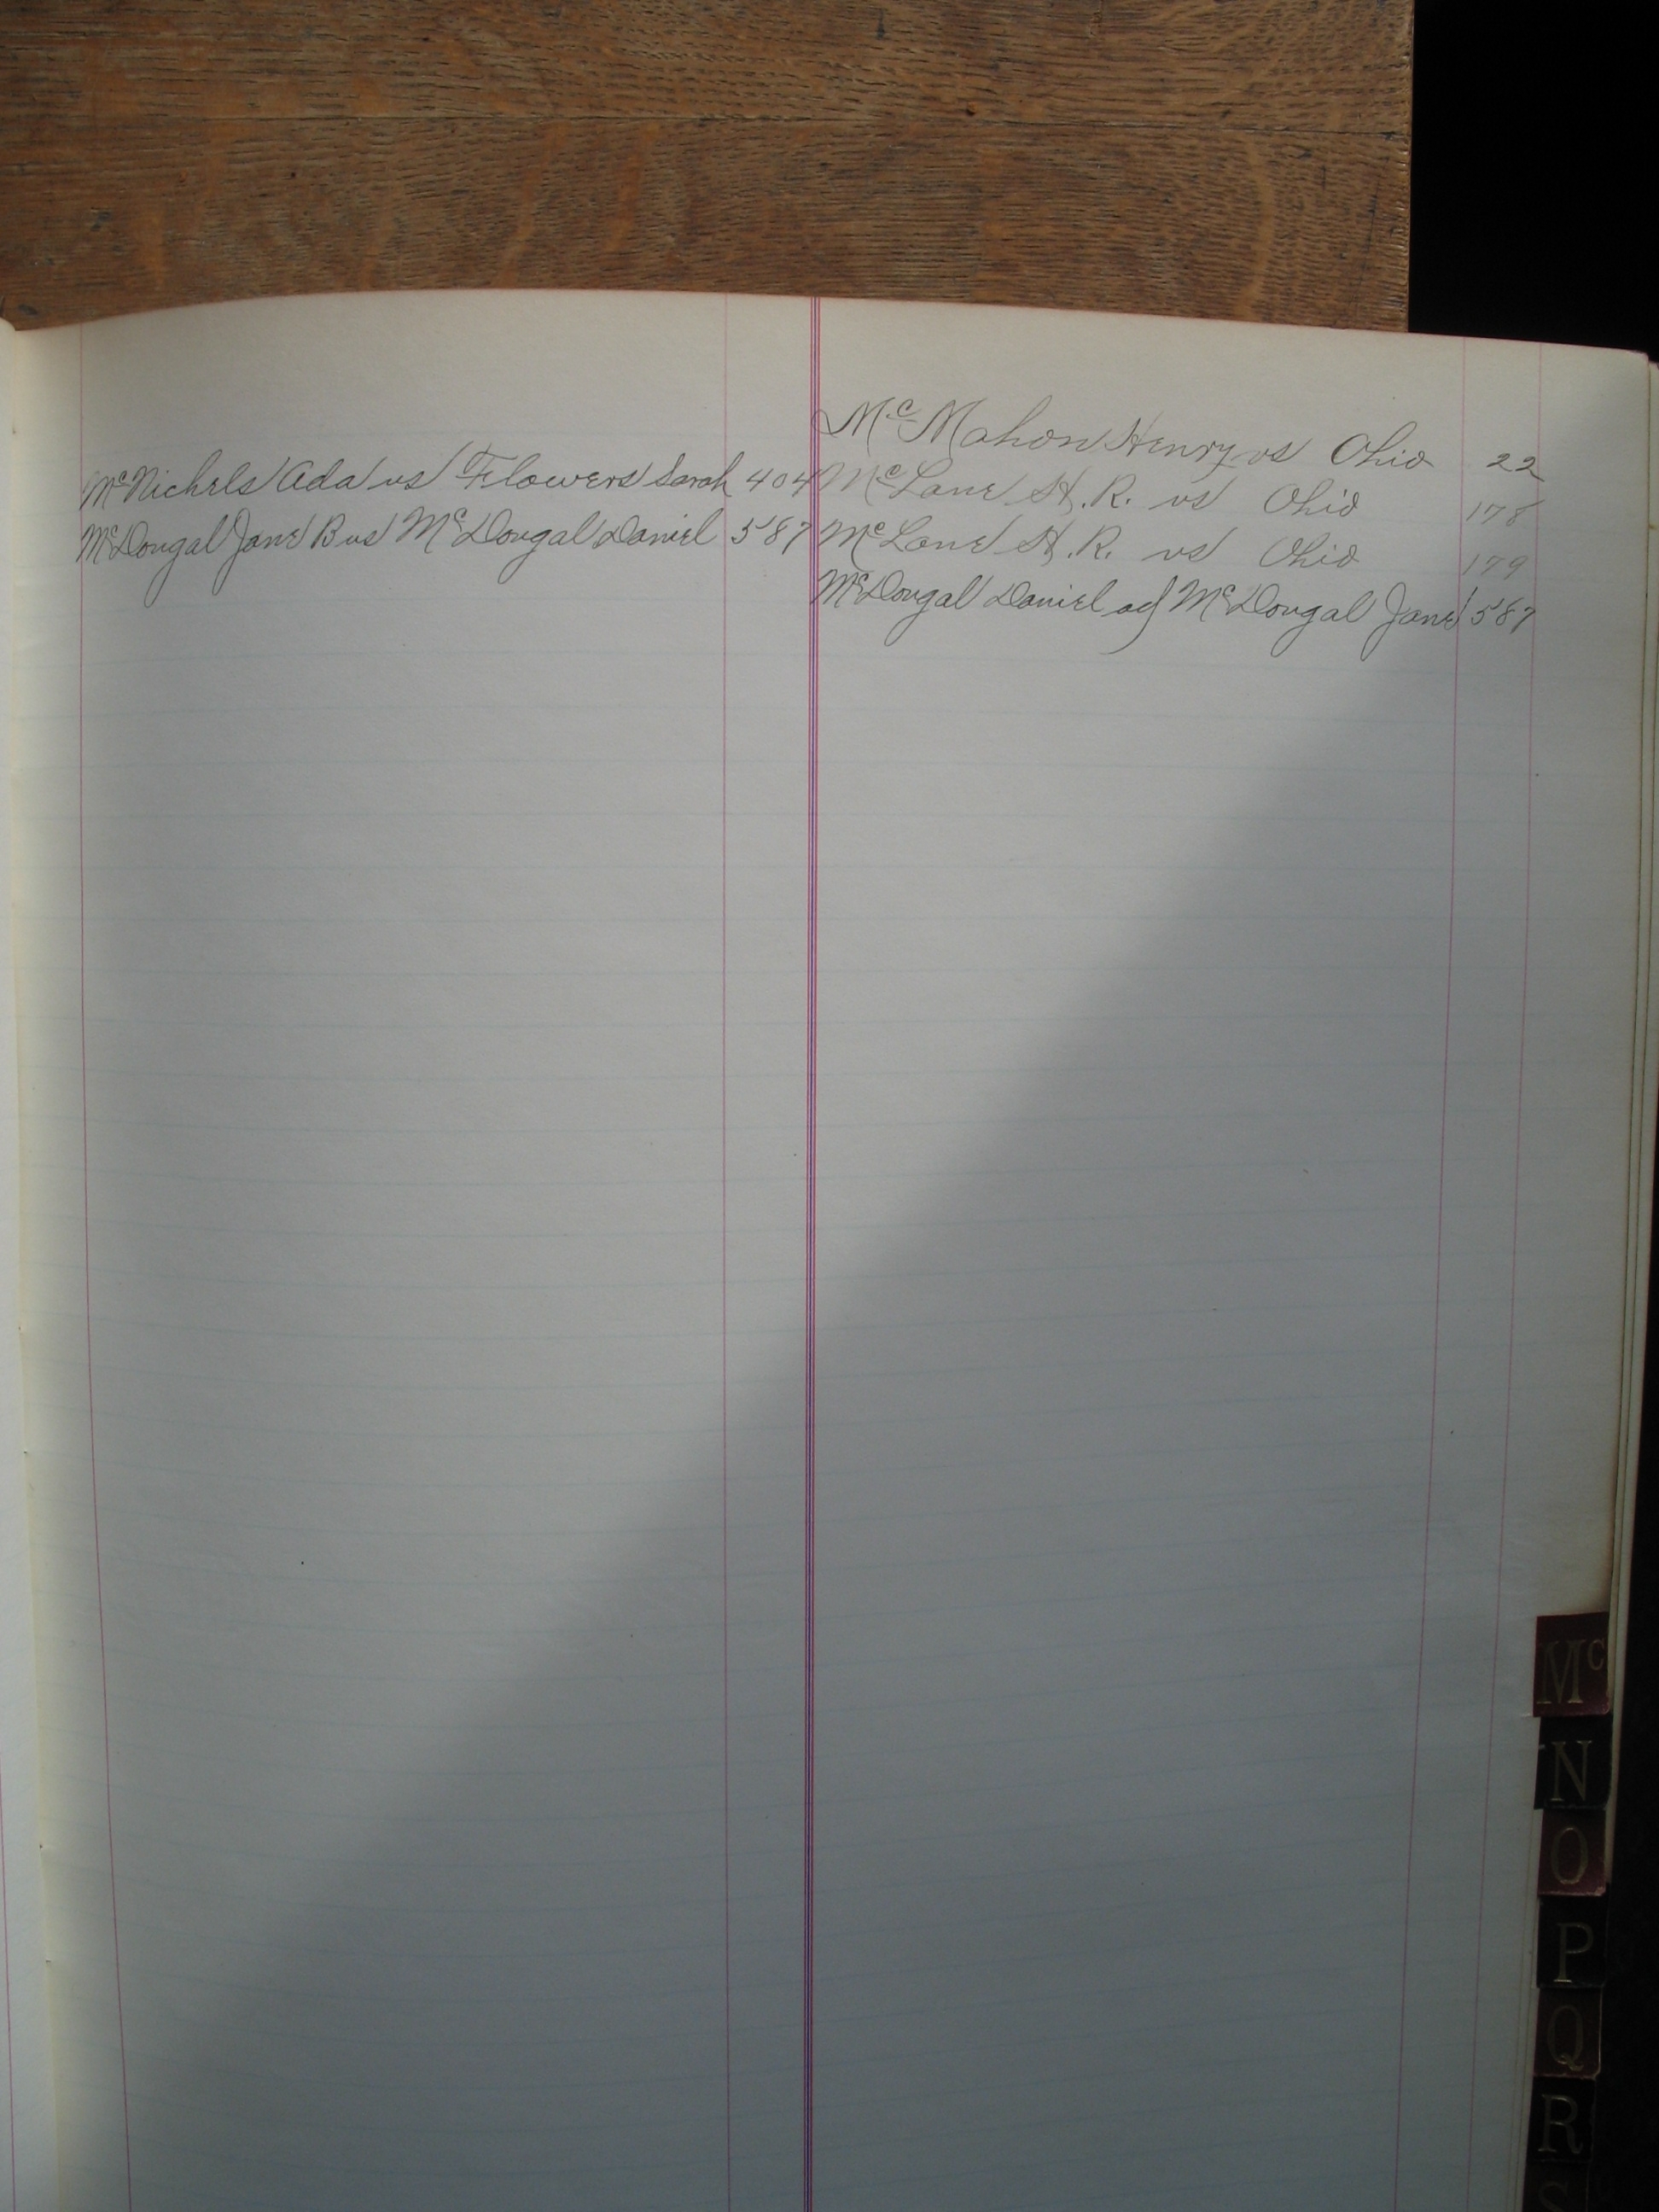 McNichels Ada vs Flowers Sarah 404
McDougal Jane B vs McDougal Daniel 587
McMahon Henry vs Ohio 22
McLane H. R. vs Ohio 178
McLane H. R. vs Ohio 179
McDougal Daniel adj McDougal Jane 587
Mc
N
O
P
Q
R
S